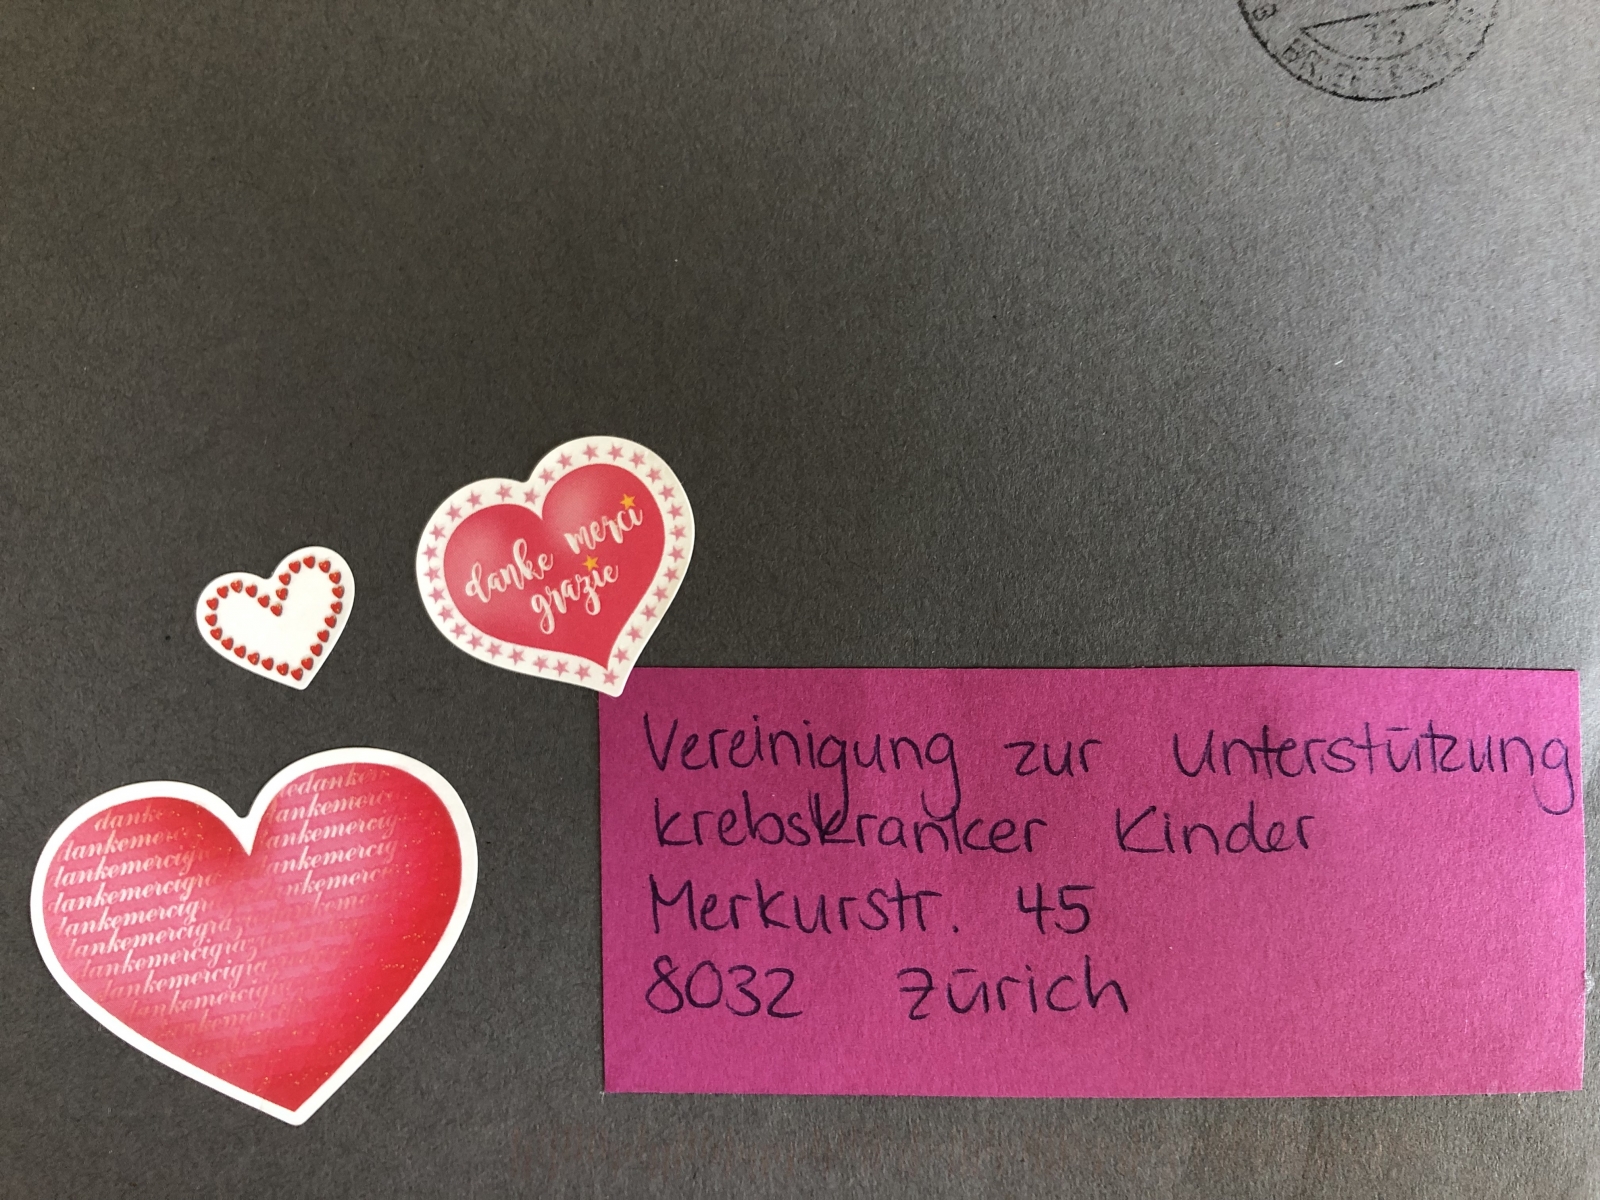 danke merci
grazie
danke
dankemer
dankemercigra
dankemercigra
dankemercigr
dankemercigraz
dankemercigra
dankemercigra
Vereinigung zur Unterstützung
krebskranker Kinder
Merkurstr. 45
8032 Zürich